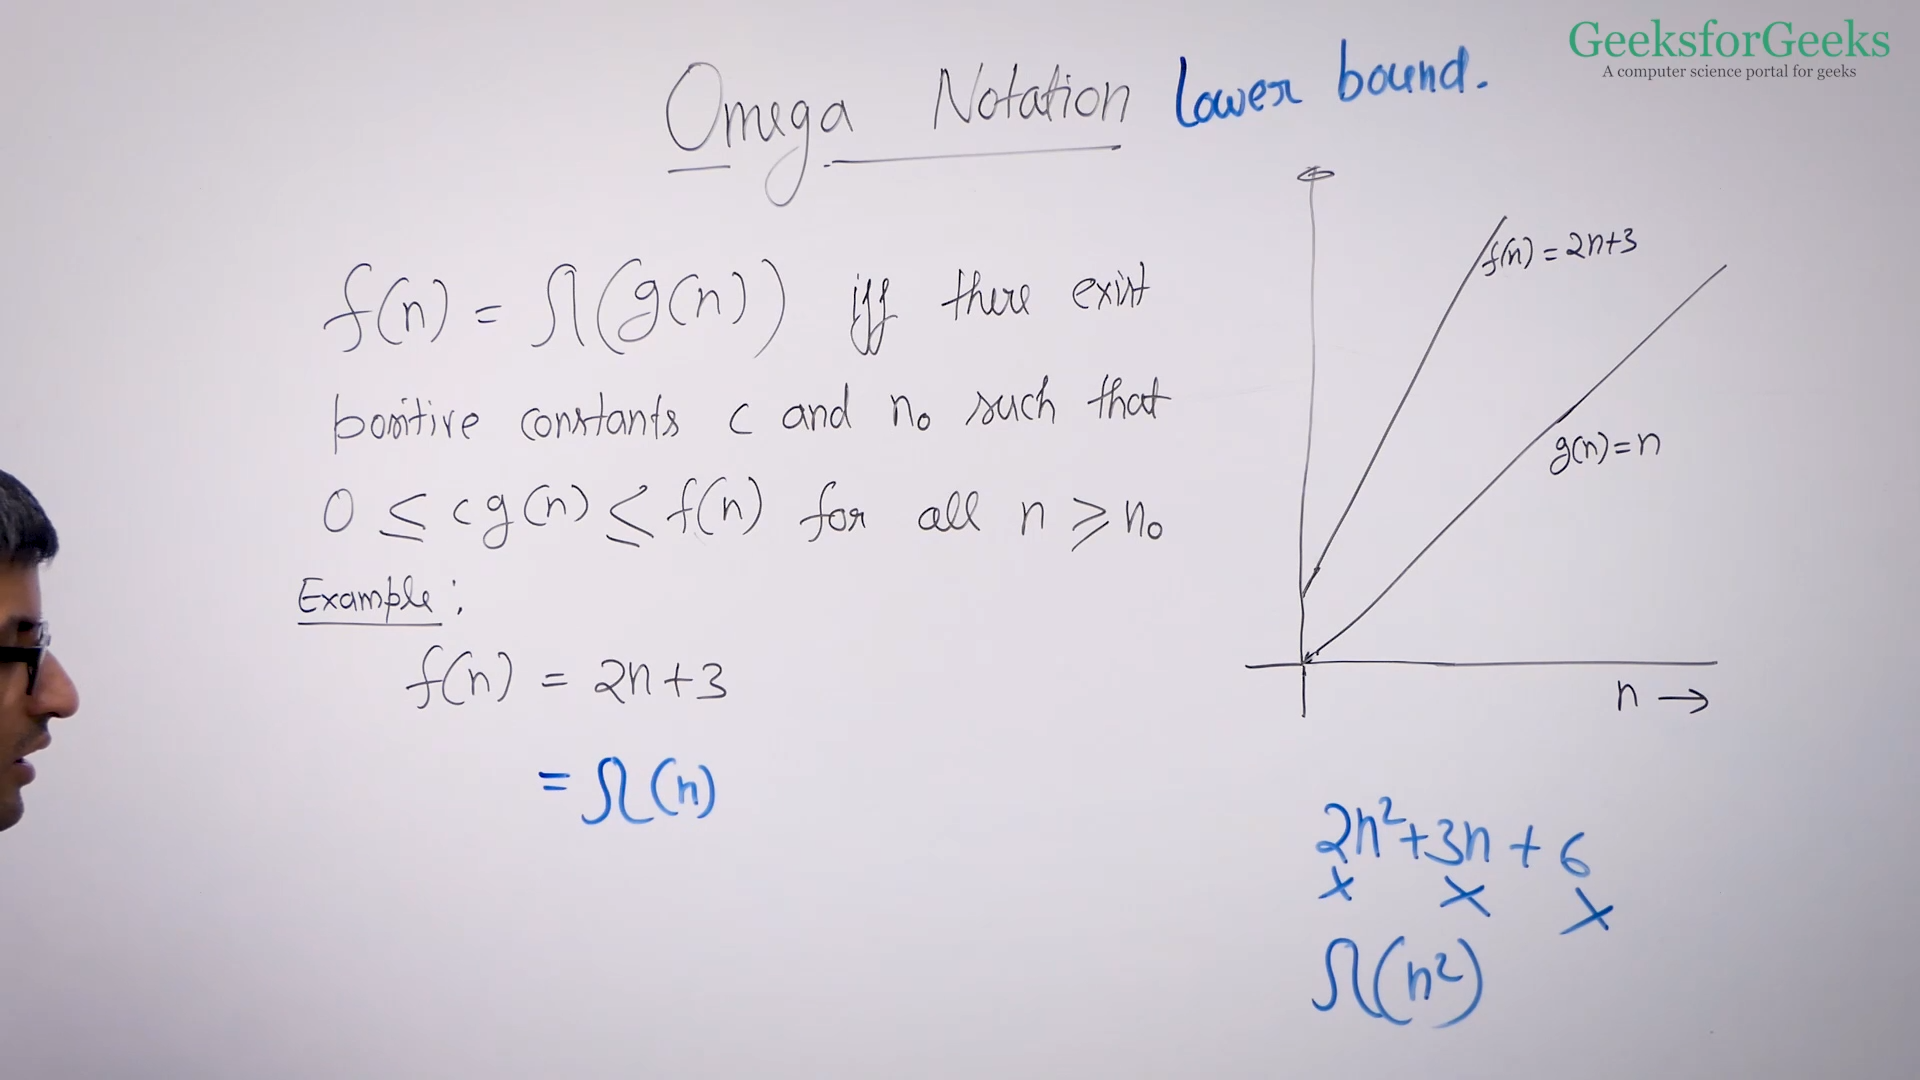 GeeksforGeeks
A computer science portal for geeks
Omega Notation lower bound.
f(n) = Ω(g(n)) iff there exist
positive constants c and n₀ such that
0 ≤ cg(n) ≤ f(n) for all n ≥ n₀
Example:
f(n) = 2n+3
= Ω(n)
f(n) = 2n+3
g(n) = n
n →
2n²+3n+6
x x x
Ω(n²)